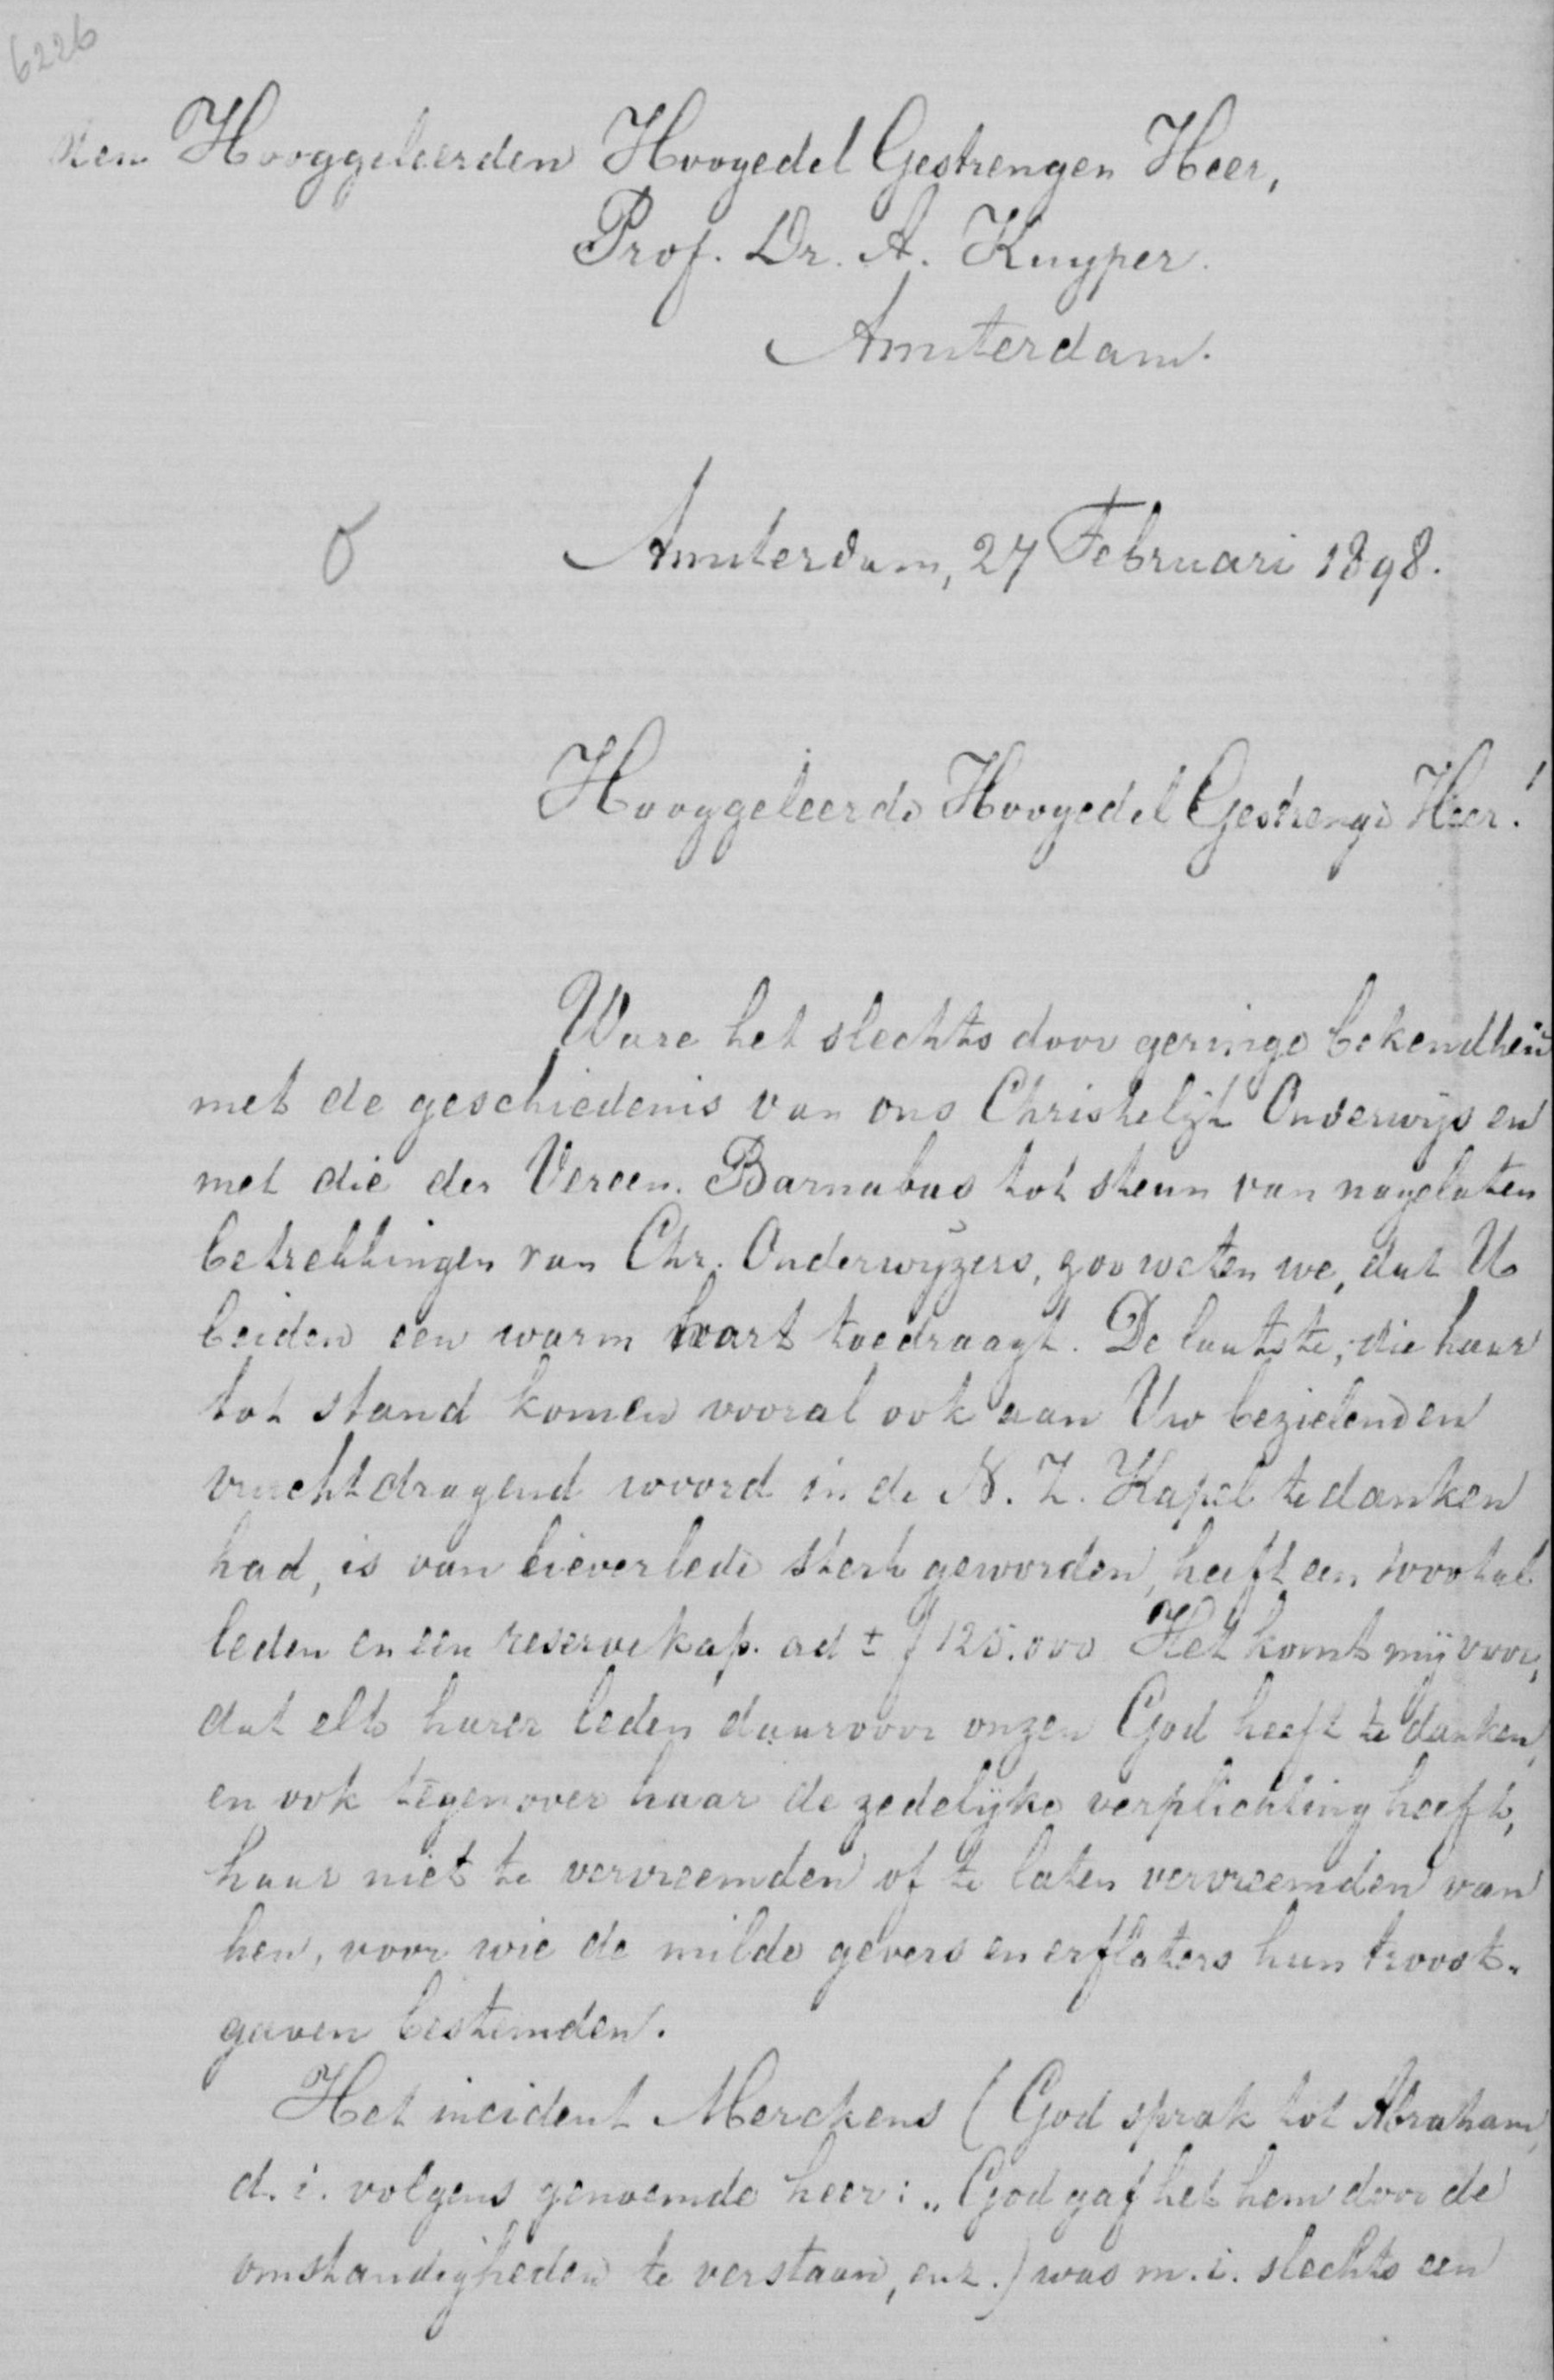 6226
den Hooggeleerden Hoogedel Gestrengen Heer,
Prof. Dr. A. Kuyper.
Amsterdam.
Amsterdam, 27 Februari 1898.
Hooggeleerde Hoogedel Gestrenge Heer!
Ware het slechts door geringe bekendheid
met de geschiedenis van ons Christelijk Onderwijs en
met die der Vereen. Barnabas tot steun van nagelaten
betrekkingen van Chr. Onderwijzers, zoo weten we, dat U
beiden een warm hart toedraagt. De laatste, die haar
tot stand komen vooral ook aan Uw bezielend en
vruchtdragend woord in de N. Z. Kapel te danken
had, is van lieverlede sterk geworden, heeft een
leden en een reservekap. ad ± ƒ 125.000 Het komt mij voor,
dat elk harer leden daarvoor onzen God heeft te danken,
en ook tegenover haar de zedelijke verplichting heeft,
haar niet te vervreemden of te laten vervreemden van
hen, voor wie de milde gevers en erflaters hun troost-
gaven bestemden.
Het incident Merckens (God sprak tot Abraham,
d. i. volgens genoemde heer: „God gaf het hem door de
omstandigheden te verstaan, enz.) was m. i. slechts een